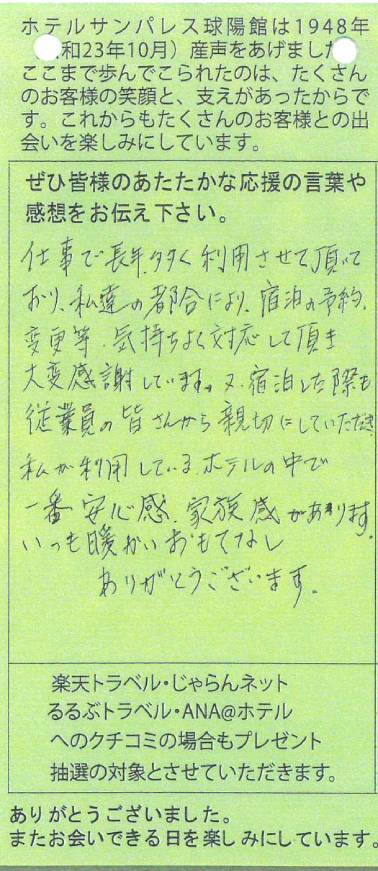 ホテルサンパレス球陽館は1948年
和23年10月）産声をあげました
ここまで歩んでこられたのは、たくさん
のお客様の笑顔と、支えがあったからで
す。これからもたくさんのお客様との出
会いを楽しみにしています。
ぜひ皆様のあたたかな応援の言葉や
感想をお伝え下さい。
仕事で長年、多く利用させて頂いて
おり、私達の都合により、宿泊の予約、
変更等、気持ちよく対応して頂き
大変感謝しています。又、宿泊した際も
従業員の皆さんから親切にしていただき
私が利用しているホテルの中で
一番安心感、家族感があります。
いつも暖かいおもてなし
ありがとうございます。
楽天トラベル・じゃらんネット
るるぶトラベル・ANA@ホテル
へのクチコミの場合もプレゼント
抽選の対象とさせていただきます。
ありがとうございました。
またお会いできる日を楽しみにしています。